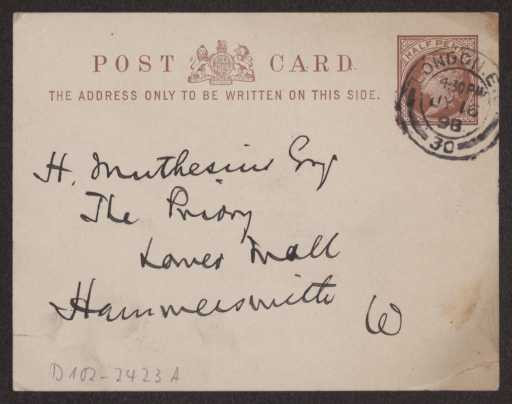 POST CARD
THE ADDRESS ONLY TO BE WRITTEN ON THIS SIDE.
HALF PENNY
LONDON, E.
4-30 PM
16
98
30
H. Muthesius Esq
The Priory
Lower Mall
Hammersmith
W
D102-2423A